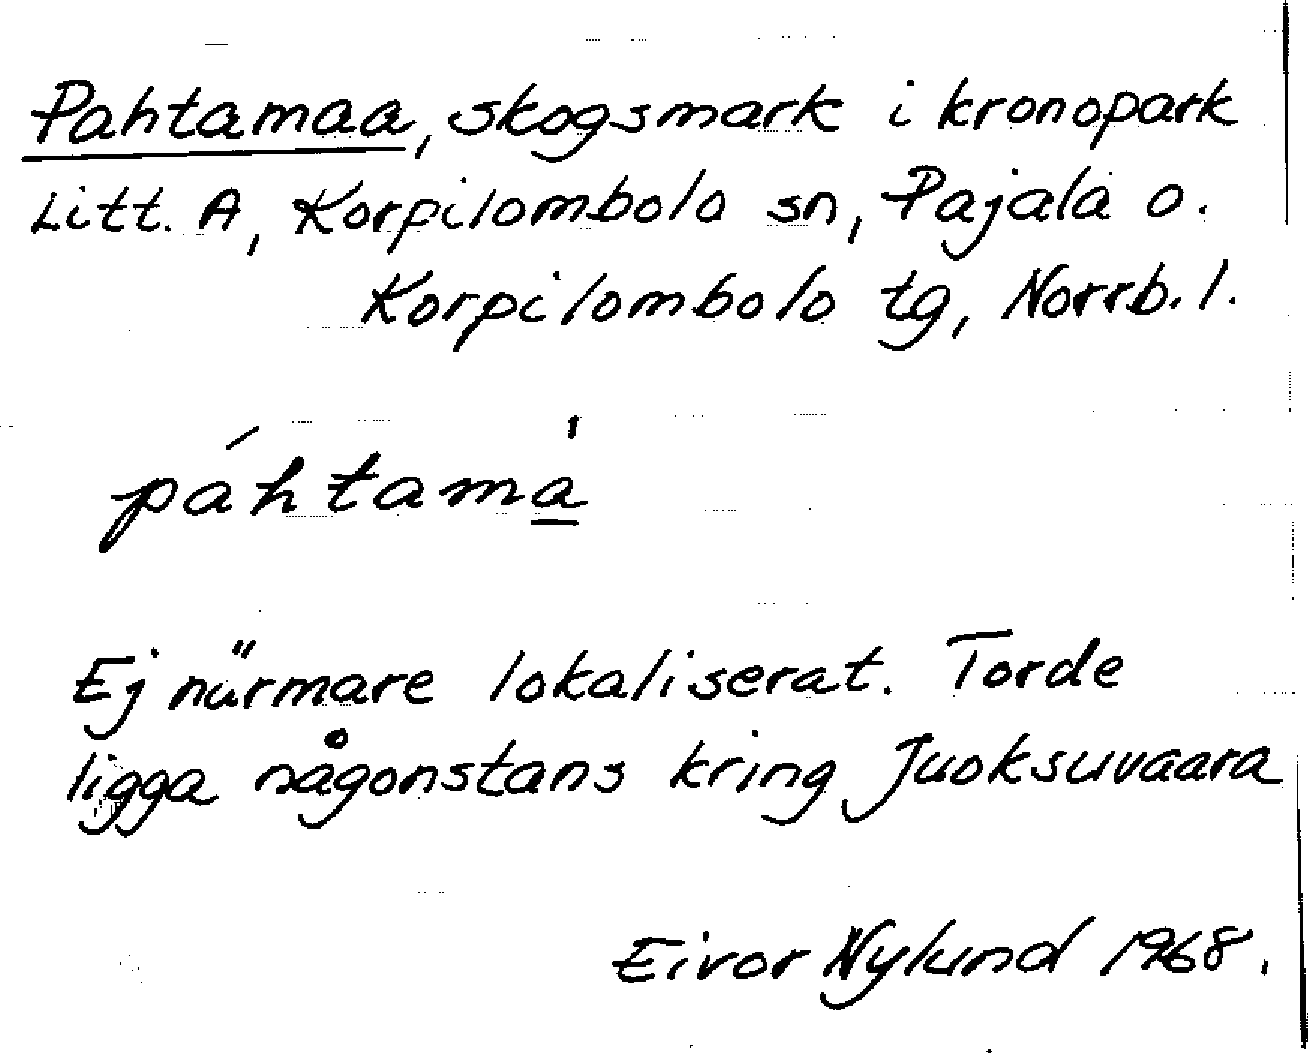 Pahtamaa, skogsmark i kronopark
Litt. A, Korpilombolo sn, Pajala o.
Korpilombolo tg, Norrb. l.
páhtama̲̍
Ej närmare lokaliserat. Torde
ligga någonstans kring Juoksuvaara
Eivor Nylund 1968.